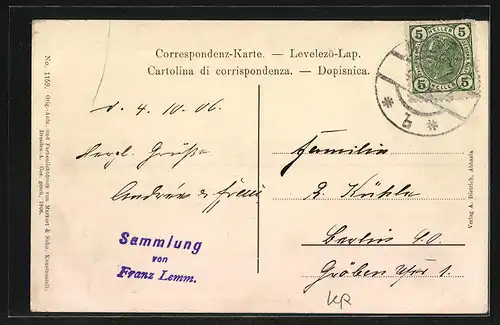 Correspondenz-Karte. — Levelező-Lap.
Cartolina di corrispondenza. — Dopisnica.
5 HELLER 5
5 HELLER 5
b
d. 4. 10. 06.
Herzl. Grüße
Andrée & Frau
Familie
R. Kühle
Berlin
Gröben Ufer 1.
Sammlung
von
Franz Lemm.
No. 1159. Orig.-Aufn. und Farbenlichtdruck von Markert & Sohn, Kunstanstalt,
Dresden-A. Ges. gesch. 1906.
Verlag A. Dietrich, Abbazia